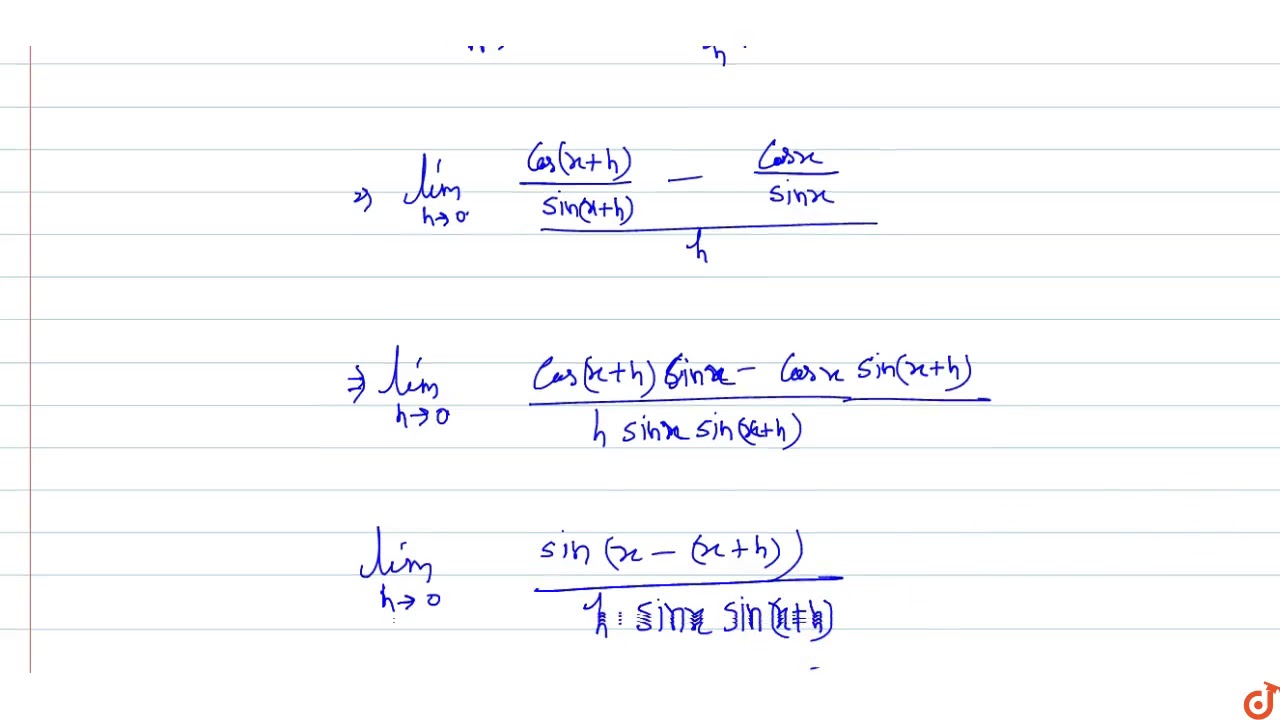 ⇒ lim h→0 (cos(x+h)/sin(x+h) − cosx/sinx)/h
⇒ lim h→0 (cos(x+h) sinx − cosx sin(x+h))/(h sinx sin(x+h))
lim h→0 sin(x − (x+h))/(h · sinx sin(x+h))